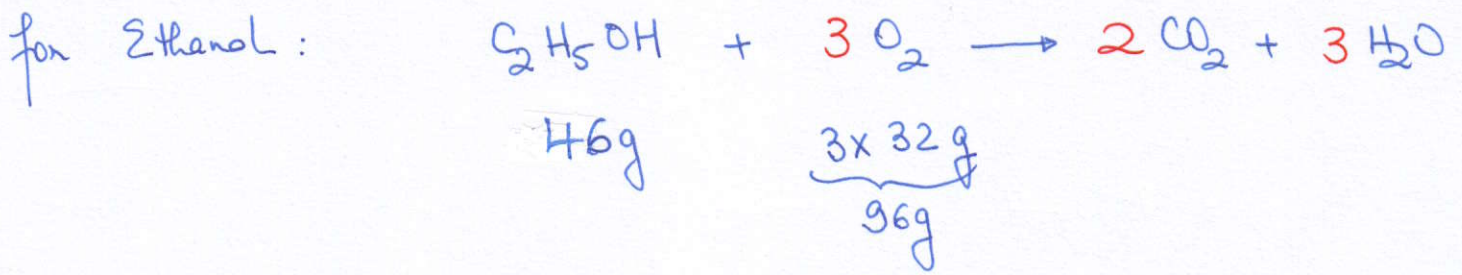 for Ethanol : C₂H₅OH + 3 O₂ → 2 CO₂ + 3 H₂O
46g 3 x 32 g
96g